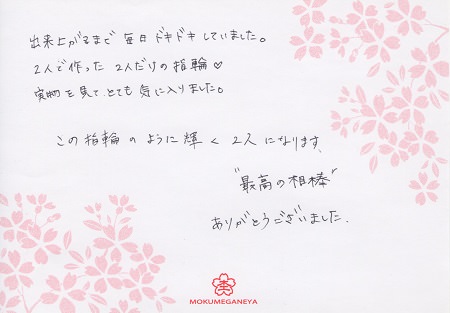 出来上がるまで 毎日 ドキドキ していました。
2人で作った 2人だけの指輪♡
実物を見て、とても 気に入りました。
この指輪のように輝く 2人になります。
"最高の相棒"
ありがとうございました。
MOKUMEGANEYA